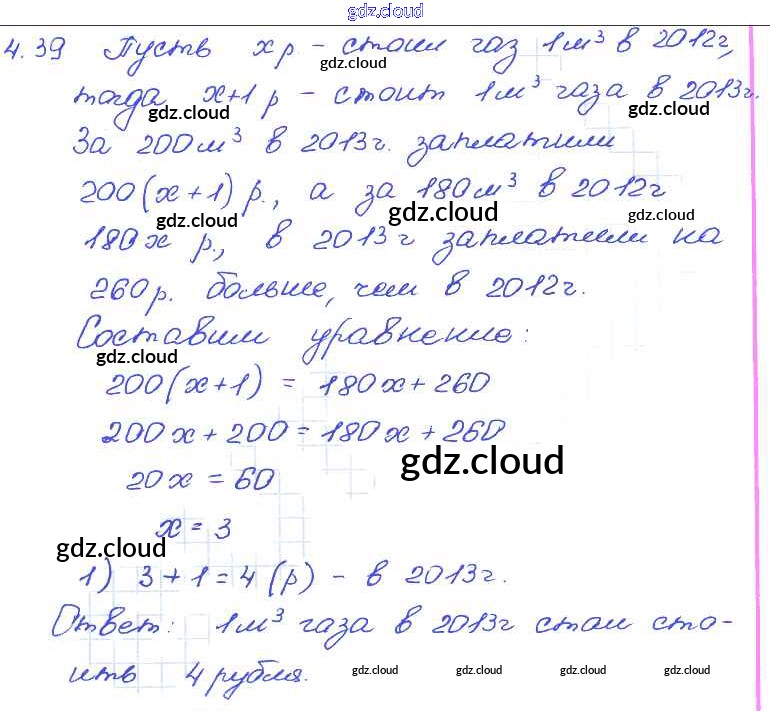 gdz.cloud
4.39 Пусть x р - стоил газ 1м³ в 2012г,
gdz.cloud
тогда x+1 р - стоит 1м³ газа в 2013г.
gdz.cloud gdz.cloud
За 200м³ в 2013г. заплатили
200(x+1) р., а за 180м³ в 2012г
gdz.cloud gdz.cloud gdz.cloud
180x р., в 2013г заплатили на
260р. больше, чем в 2012г.
Составим уравнение:
gdz.cloud
200(x+1) = 180x+260
200x+200=180x+260
gdz.cloud
20x = 60
x = 3
gdz.cloud
1) 3+1=4 (р) - в 2013г.
Ответ: 1м³ газа в 2013г стал сто-
ить 4 рубля.
gdz.cloud gdz.cloud gdz.cloud gdz.cloud